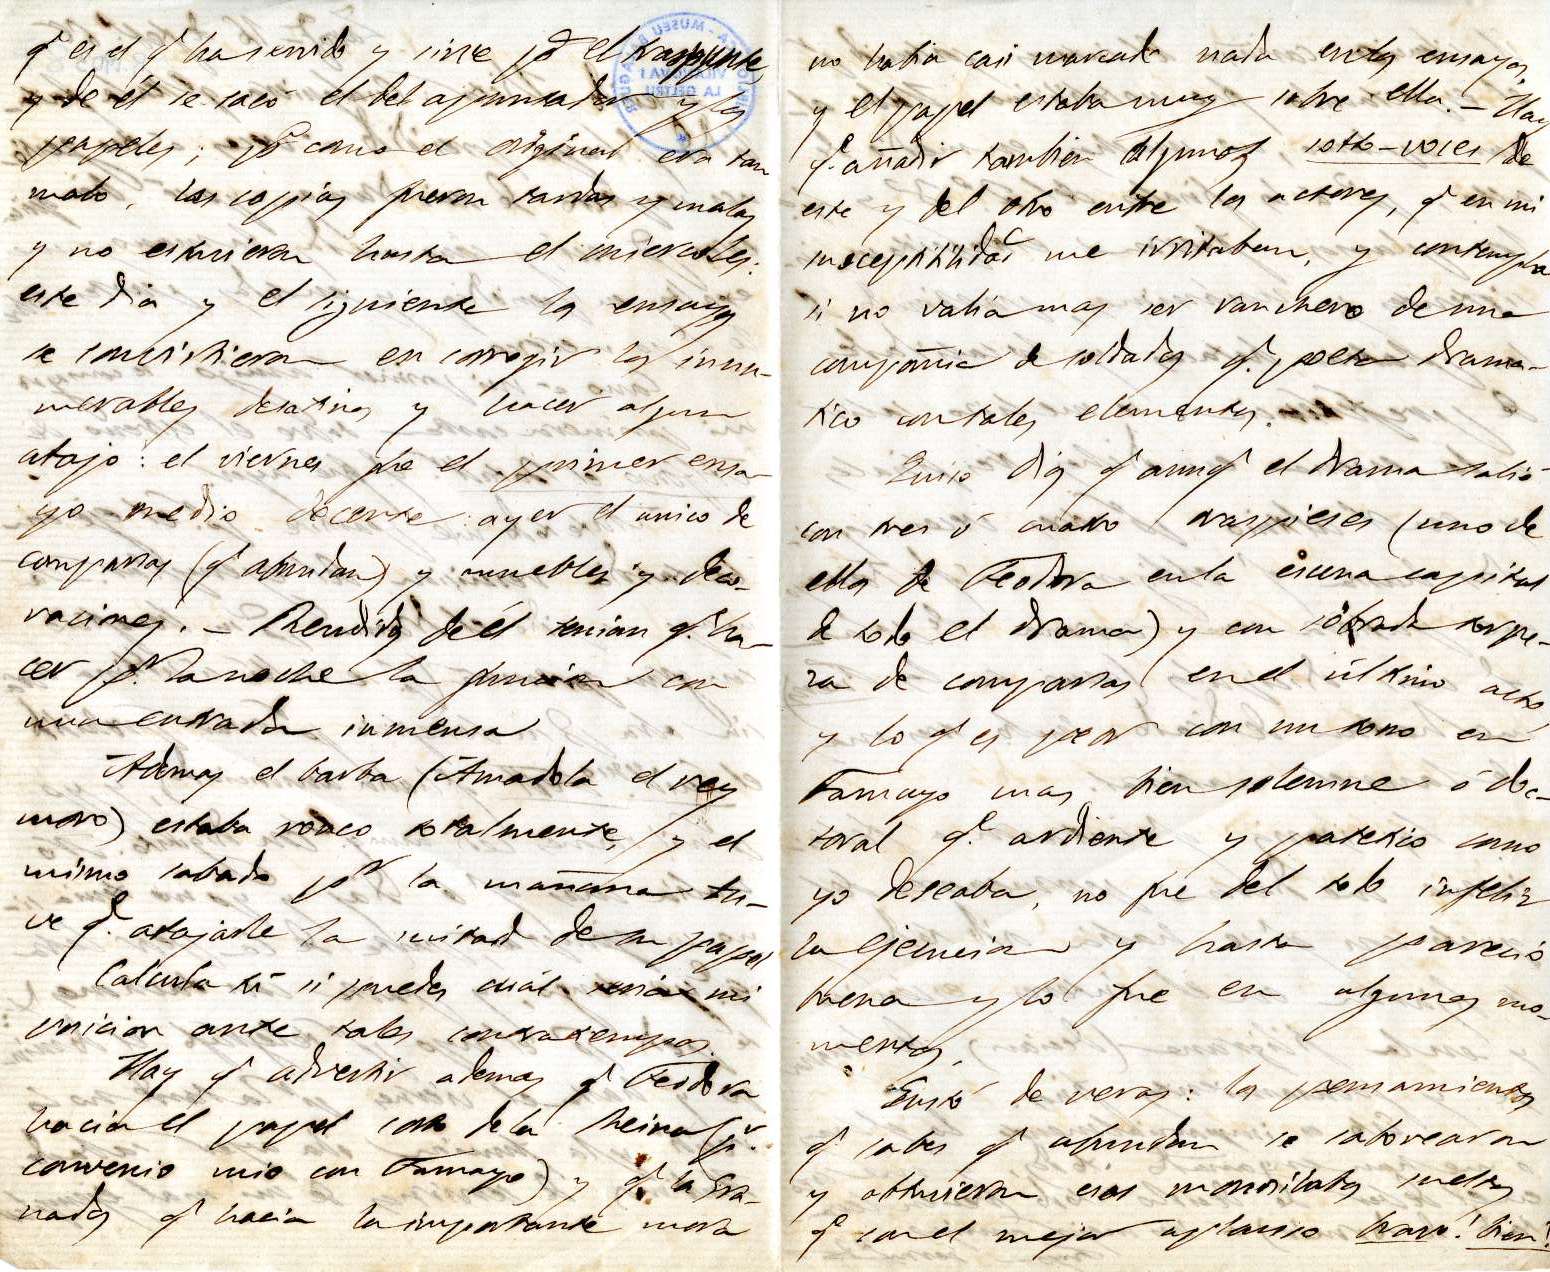 q.e es el q.e ha servido y sirve p.a el traspunte,
y de él se sacó el del apuntador y los
papeles; p.o como el original era tan
malo, las copias fueron tardas y malas
y no estuvieron hasta el miercoles:
este dia y el siguiente los ensayos
se convirtieron en corregir los innu-
merables desatinos y hacer algun
atajo: el viernes fue el primer ensa-
yo medio decente: ayer el unico de
comparsas (q.e abundan) y muebles y deco-
raciones. — Rendidos de él tenian q.e ha-
cer p.r la noche la funcion con
una entrada inmensa
Ademas el barba (Amadola el rey
moro) estaba ronco totalmente, y el
mismo sabado p.r la mañana tu-
ve q.e atajarle la mitad de su papel
Calcula tú si puedes cuál seria mi
posicion ante tales contratiempos.
Hay q.e advertir ademas q.e Teodora
hacia el papel corto de la Reina (p.r
convenio mio con Tamayo) y q.e la Gra-
nados q.e hacia la importante mora
no habia casi marcado nada en los ensayos,
y el papel estaba muy sobre ella. — Hay
q.e añadir tambien algunos sotto-voces de
este y del otro entre los actores, q.e en mi
suceptibilidad me irritaban, y contempla
si no valia mas ser ranchero de una
compañia de soldados q.e poeta drama-
tico con tales elementos.
Quiso Dios q.e aunq.e el drama salió
con tres ó cuatro traspieses (uno de
ellos de Teodora en la escena capital
de todo el drama) y con sobrada torpe-
za de comparsas en el último acto,
y lo q.e es peor con un tono en
Tamayo mas bien solemne ó doc-
toral q.e ardiente y patetico como
yo deseaba, no fue del todo infeliz
la ejecucion y hasta pareció
buena y lo fue en algunos mo-
mentos.
Gustó de veras: los pensamientos
q.e sabes q.e abundan se saborearon
y obtuvieron esos monosilabos sueltos
q.e son el mejor aplauso bravo! bien!